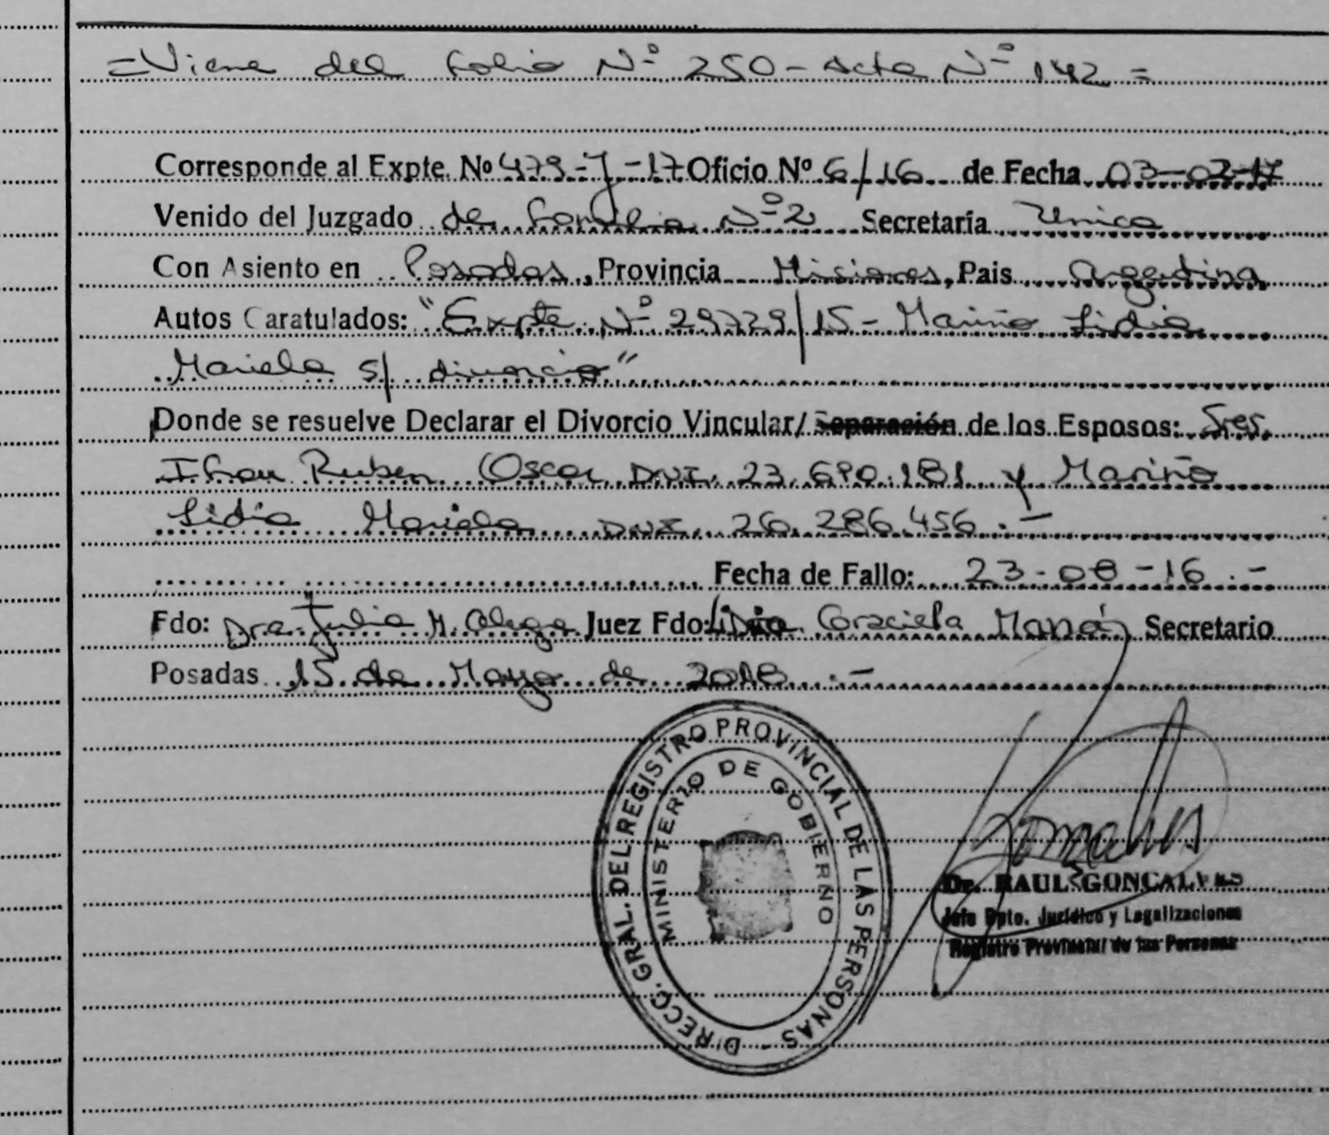 = Viene del Folio Nº 250 - Acta Nº 142 =
Corresponde al Expte. Nº 479-J-17 Oficio Nº 6/16 de Fecha 03-02-17
Venido del Juzgado de Familia Nº 2 Secretaría Unica
Con Asiento en Posadas, Provincia Misiones, Pais Argentina
Autos Caratulados: "Expte Nº 29729/15 - Mariño Lidia
Mariela s/ divorcio"
Donde se resuelve Declarar el Divorcio Vincular/ Separación de los Esposos: Sres.
Ifran Ruben Oscar DNI. 23.690.181 y Mariño
Lidia Mariela DNI. 26.286.456.-
Fecha de Fallo: 23-08-16.-
Fdo: Dra. Julia M. Juez Fdo: Lidia Graciela Secretario
Posadas 15 de Mayo de 2018.-
DIRECC. GRAL. DEL REGISTRO PROVINCIAL DE LAS PERSONAS -
MINISTERIO DE GOBIERNO
Dr. RAUL GONCALVES
Jefe Dpto. Jurídico y Legalizaciones
Registro Provincial de las Personas